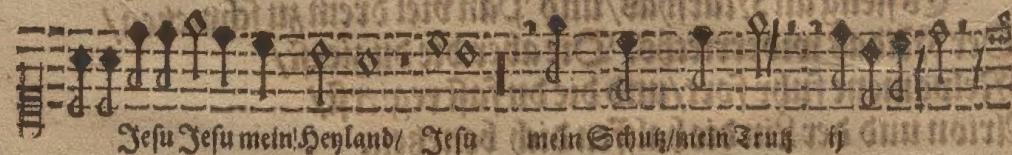 Jesu Jesu mein Heyland/ Jesu mein Schutz/mein Trutz ij